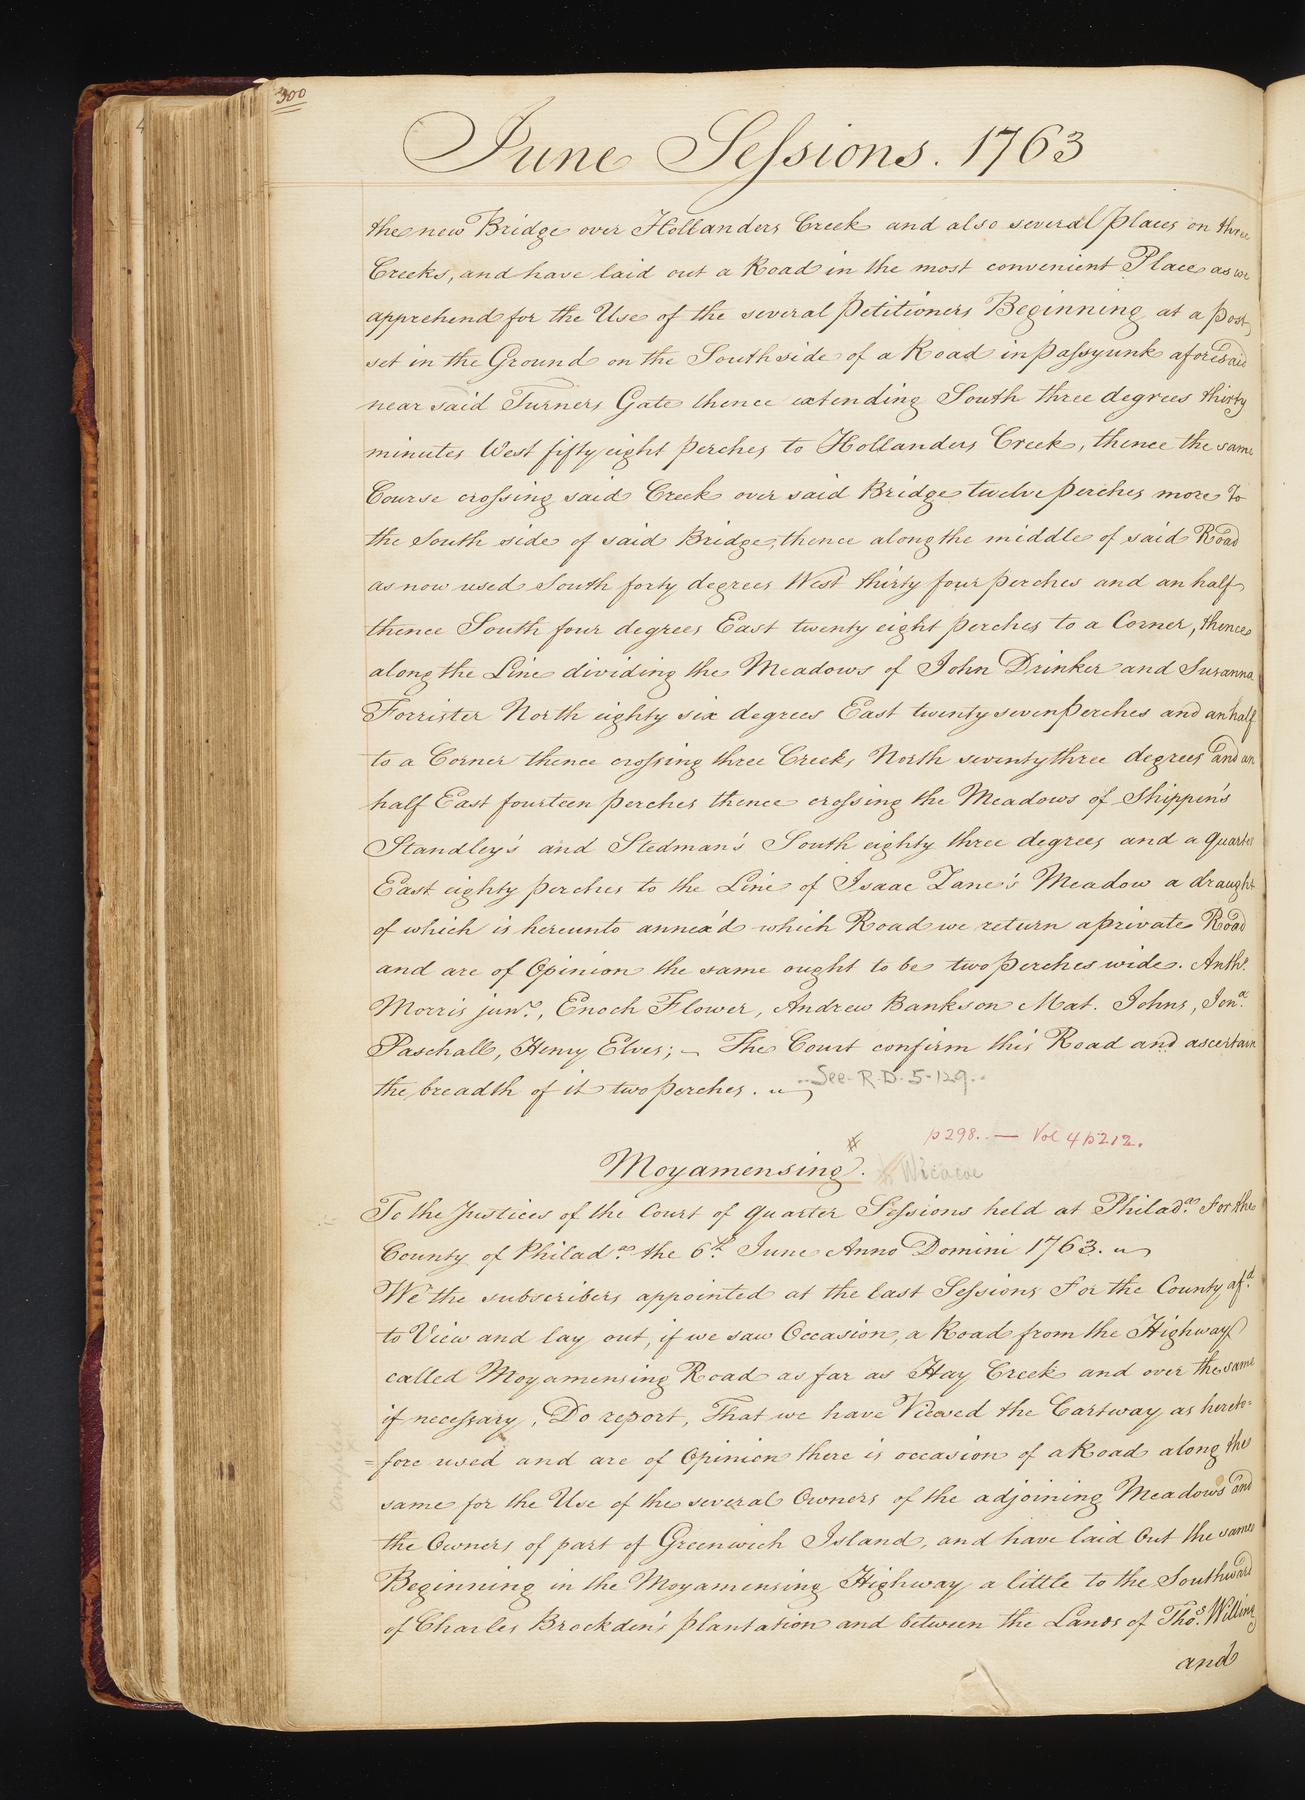 300
June Sessions. 1763
the new Bridge over Hollanders Creek and also several places on three
Creeks, and have laid out a Road in the most convenient Place as we
apprehend for the Use of the several petitioners Beginning at a post
set in the Ground on the South side of a Road in passyunk aforesaid
near said Turners Gate thence extending South three degrees thirty
minutes West fifty eight perches to Hollanders Creek, thence the same
Course crossing said Creek over said Bridge twelve perches more to
the South side of said Bridge, thence along the middle of said Road
as now used South forty degrees West thirty four perches and an half
thence South four degrees East twenty eight perches to a Corner, thence
along the Line dividing the Meadows of John Drinker and Susanna
Forrister North eighty six degrees East twenty seven perches and an half
to a Corner thence crossing three Creeks North seventy three degrees and an
half East fourteen perches thence crossing the Meadows of Shippen's
Standley's and Stedman's South eighty three degrees and a quarter
East eighty perches to the Line of Isaac Zane's Meadow a draught
of which is hereunto annex'd which Road we return a private Road
and are of Opinion the same ought to be two perches wide. Anthy.
Morris junr., Enoch Flower, Andrew Bankson Mat. Johns, Jona.
Paschall, Henry Elves; – The Court confirm this Road and ascertain
the breadth of it two perches.
See R.D. 5-129.
p298. — Vol 4 p212.
Moyamensing. Wicacoe
To the Justices of the Court of quarter Sessions held at Philada. For the
County of Philada. the 6th. June Anno Domini 1763.
We the subscribers appointed at the last Sessions For the County afd.
to View and lay out, if we saw Occasion, a Road from the Highway
called Moyamensing Road as far as Hay Creek and over the same
if necessary, Do report, That we have Viewed the Cartway as hereto=
=fore used and are of Opinion there is occasion of a Road along the
same for the Use of the several Owners of the adjoining Meadows and
the Owners of part of Greenwich Island, and have laid Out the same
Beginning in the Moyamensing Highway a little to the Southward
of Charles Brockden's plantation and between the Lands of Thos. Willing
and